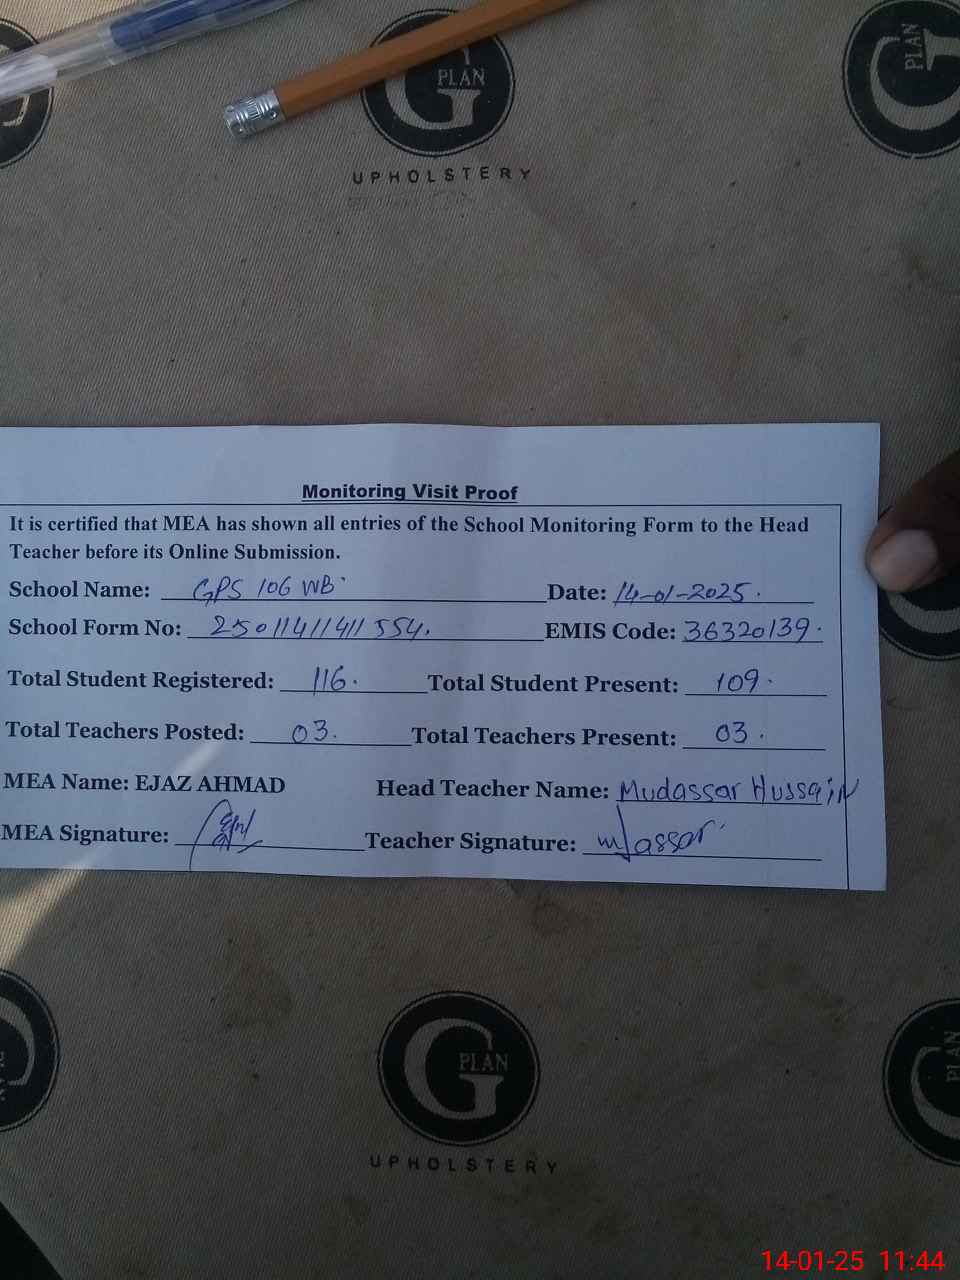 PLAN
UPHOLSTERY
PLAN
Monitoring Visit Proof
It is certified that MEA has shown all entries of the School Monitoring Form to the Head
Teacher before its Online Submission.
School Name: GPS 106 WB Date: 14-01-2025.
School Form No: 25011411411554. EMIS Code: 36320139.
Total Student Registered: 116. Total Student Present: 109.
Total Teachers Posted: 03. Total Teachers Present: 03.
MEA Name: EJAZ AHMAD Head Teacher Name: Mudassar Hussain
MEA Signature: Teacher Signature: Mudassar
PLAN
UPHOLSTERY
14-01-25 11:44